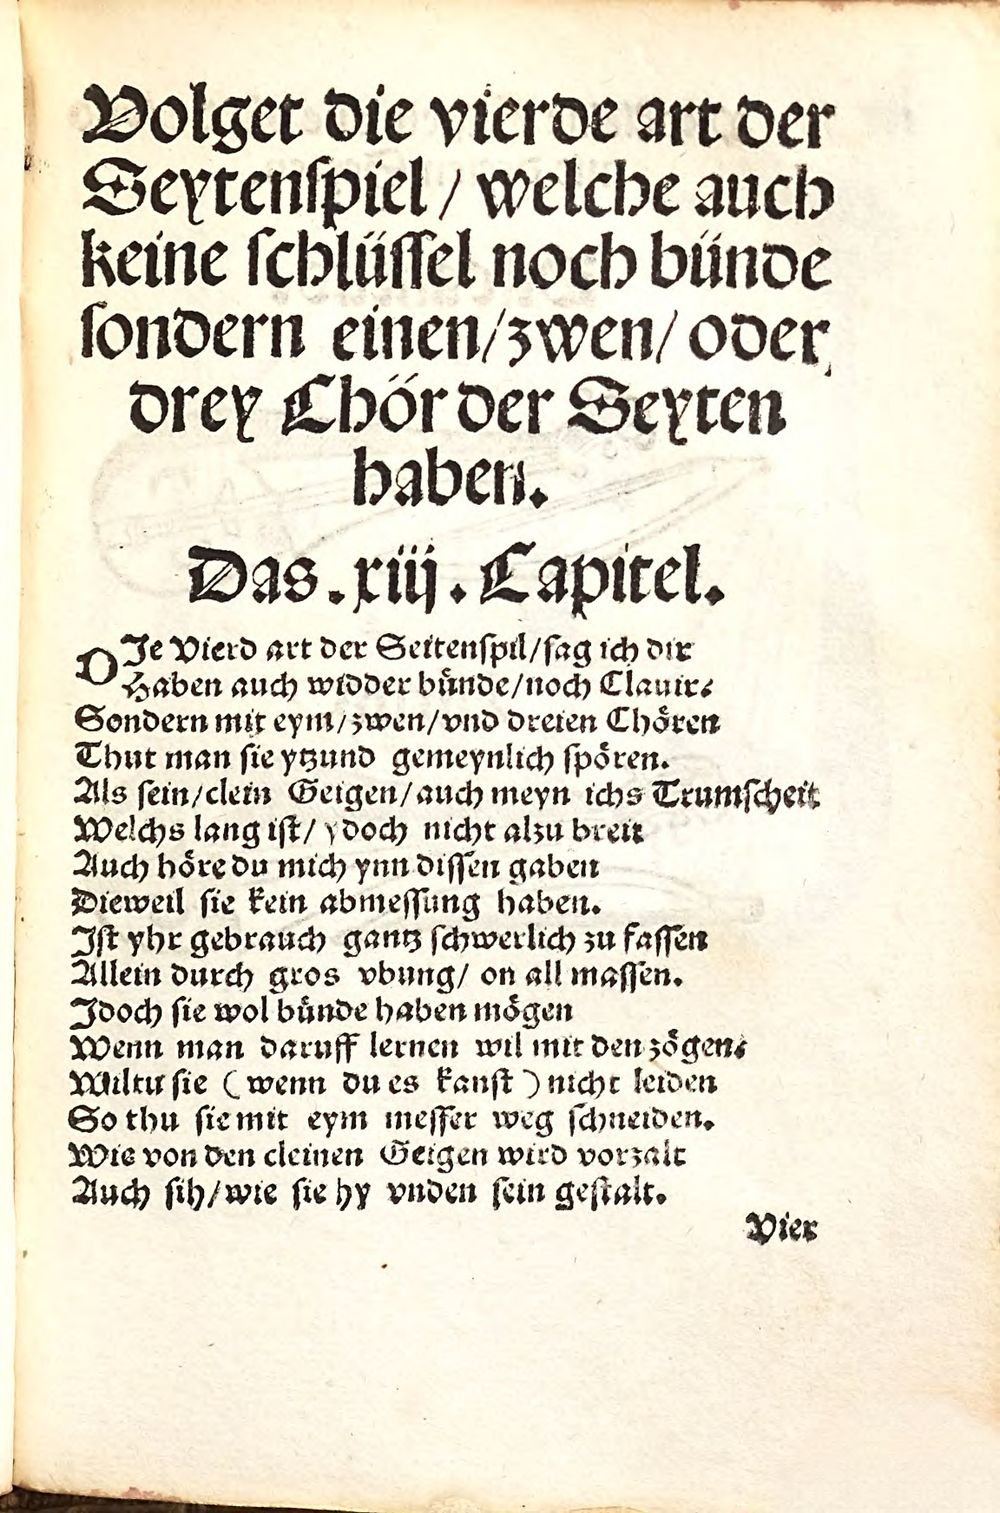 Volget die vierde art der
Seytenſpiel / welche auch
keine ſchlüſſel noch bünde
ſondern einen / zwen / oder
drey Chör der Seyten
haben.
Das . xiij . Capitel.
DIe Vierd art der Seitenſpil / ſag ich dir
Haben auch widder bůnde / noch Clauir.
Sondern mit eym / zwen / vnd dreien Chören
Thut man ſie ytzund gemeynlich ſpören.
Als ſein / clein Geigen / auch meyn ichs Trumſcheit
Welchs lang iſt / ydoch nicht alzu breit
Auch höre du mich ynn diſſen gaben
Dieweil ſie kein abmeſſung haben.
Iſt yhr gebrauch gantz ſchwerlich zu faſſen
Allein durch gros vbung / on all maſſen.
Idoch ſie wol bůnde haben mögen
Wenn man daruff lernen wil mit den zögen.
Wiltu ſie ( wenn du es kanſt ) nicht leiden
So thu ſie mit eym meſſer weg ſchneiden.
Wie von den cleinen Geigen wird vorzalt
Auch ſih / wie ſie hy vnden ſein geſtalt.
Vier